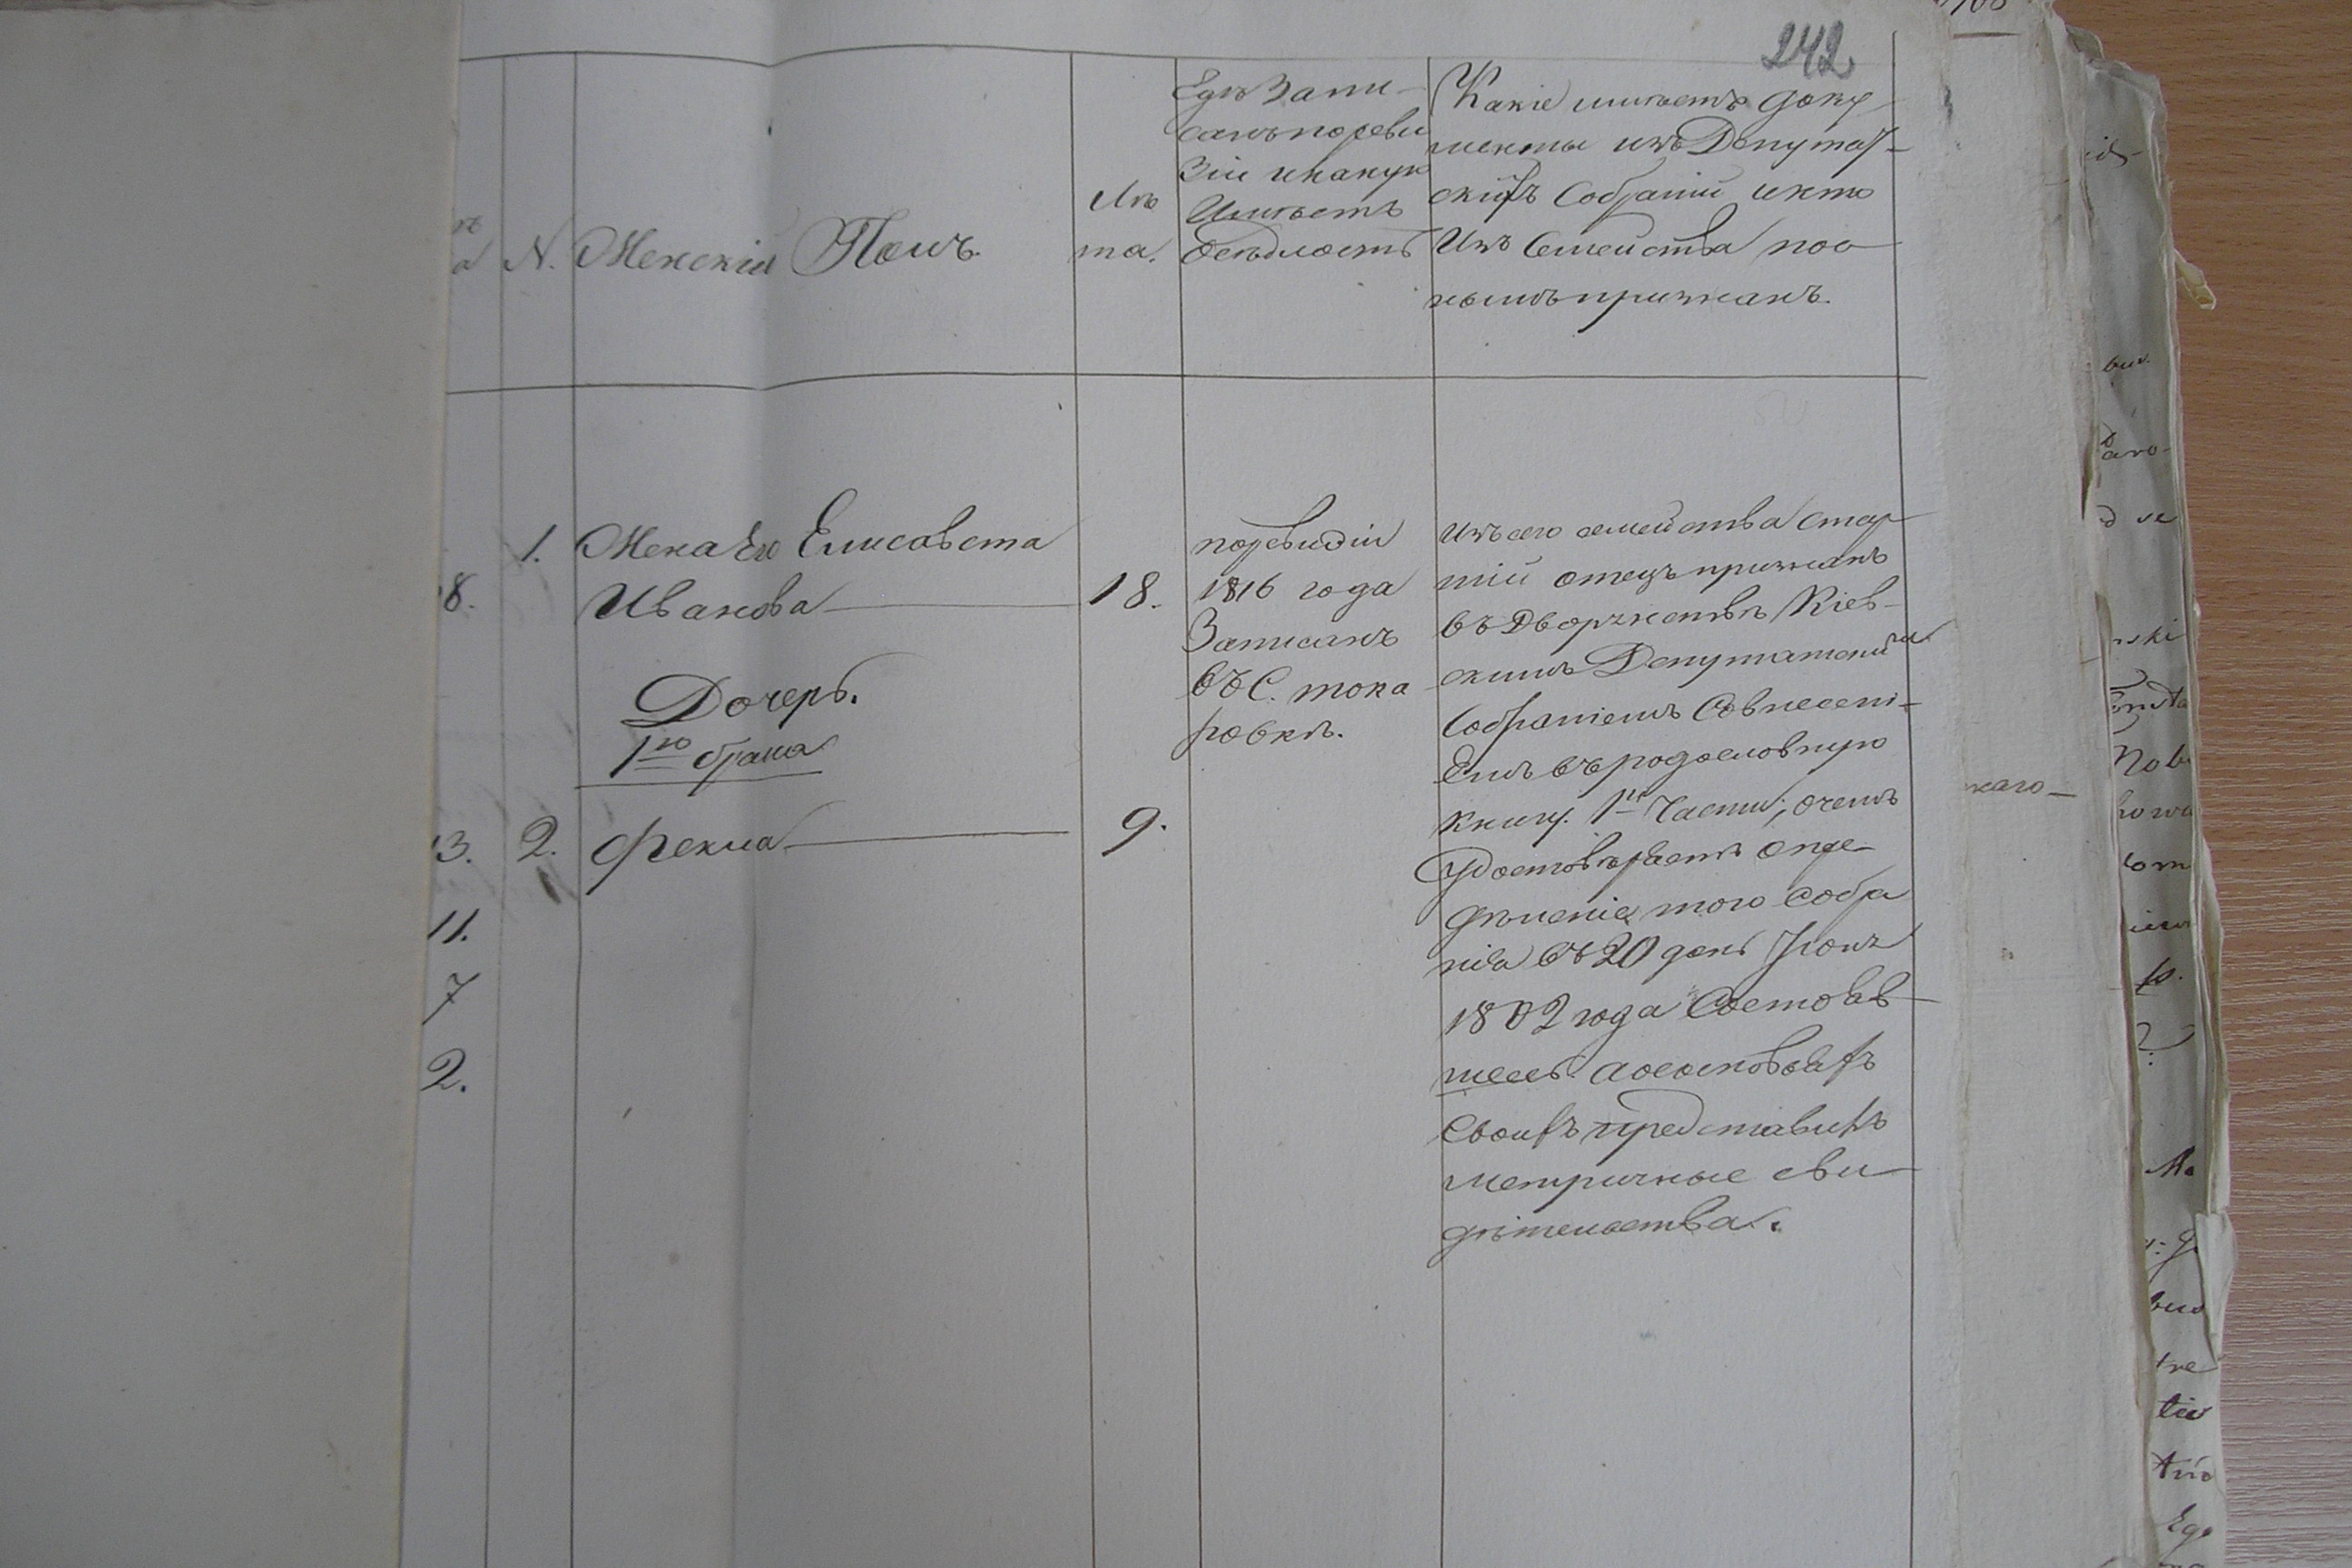 242
N.
Женскій Полъ.
Лѣ
та.
Гдѣ Запи-
санъ по реви
зіи и какую
Имѣетъ
осѣдлость
Какіе имѣетъ доку
менты изъ Депутат-
скихъ Собраній и кто
Изъ Семейства по о
нымъ признанъ.
8.
1. Жена Его Елисавета
Иванова 18.
Дочерь.
1го брака
3. 2. Фекла 9.
11.
7
2.
по ревизіи
1816 года
Записанъ
въ С. тока
ровкѣ.
Изъ сего семейства стар
шій отецъ признанъ
въ Дворянствѣ Кіев-
скимъ Депутатскимъ
Собраніемъ Совнесені-
Емъ въ родословную
книгу. 1й Части; о чемъ
Удостовѣряетъ опре-
дѣленіе того Собра
нія въ 20 день Іюня
1802 года Состояв-
шеесь. а о сыновьяхъ
Своихъ представитъ
метричные сви
дѣтельства.
каго